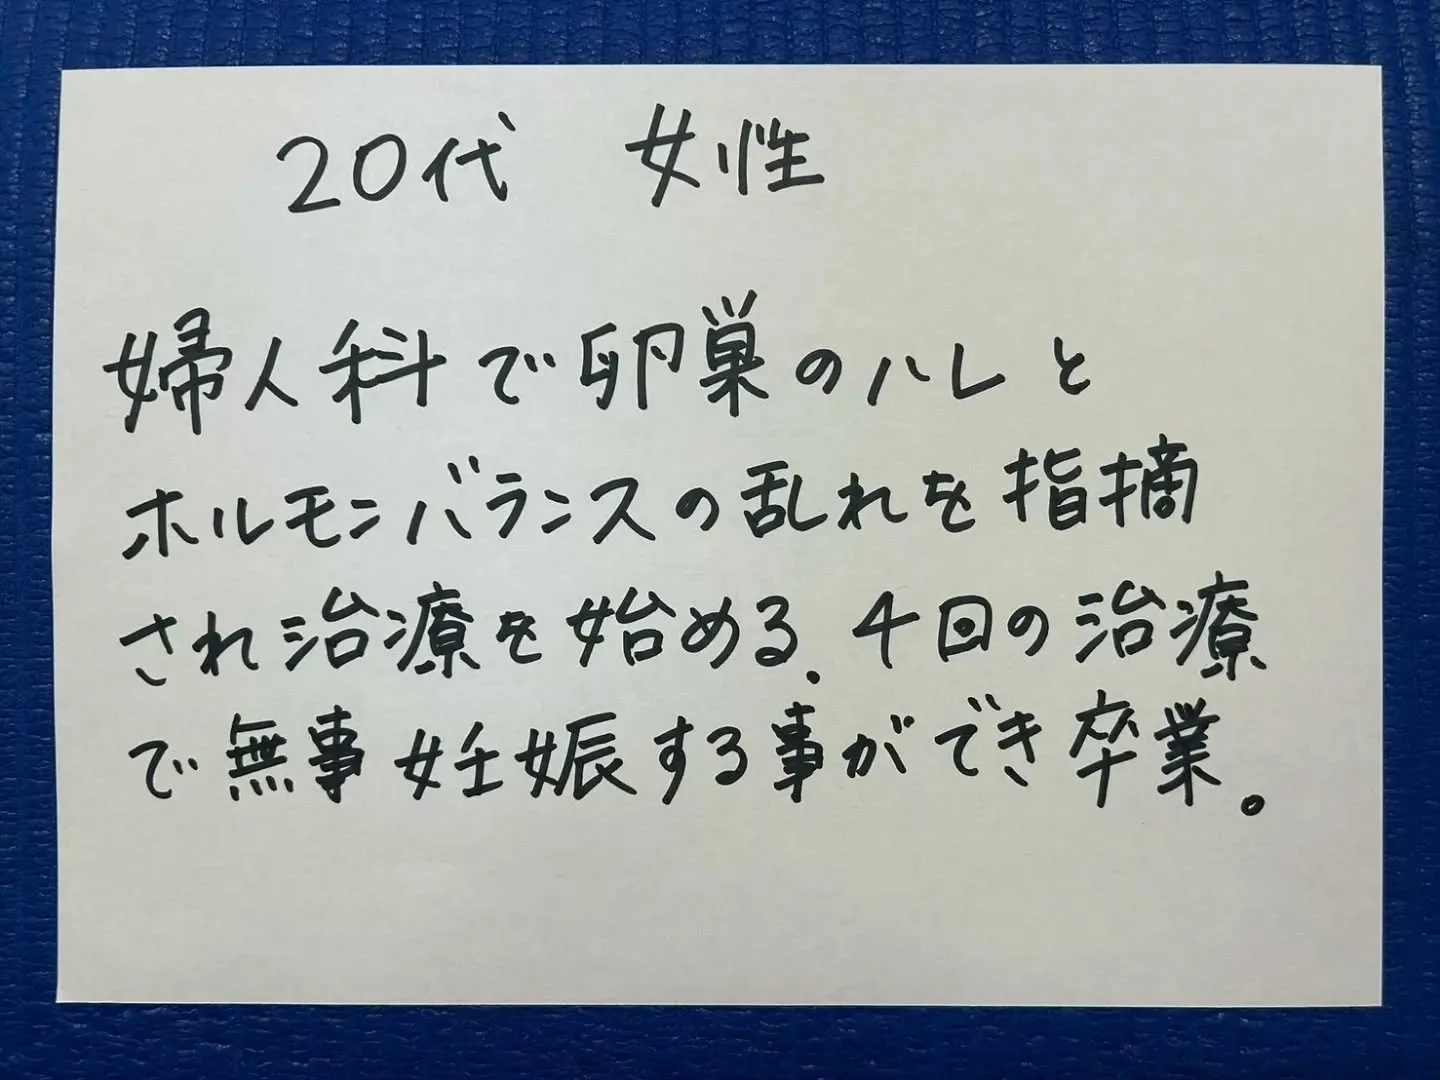 20代 女性
婦人科で卵巣のハレと
ホルモンバランスの乱れを指摘
され治療を始める.4回の治療
で無事妊娠する事ができ卒業。